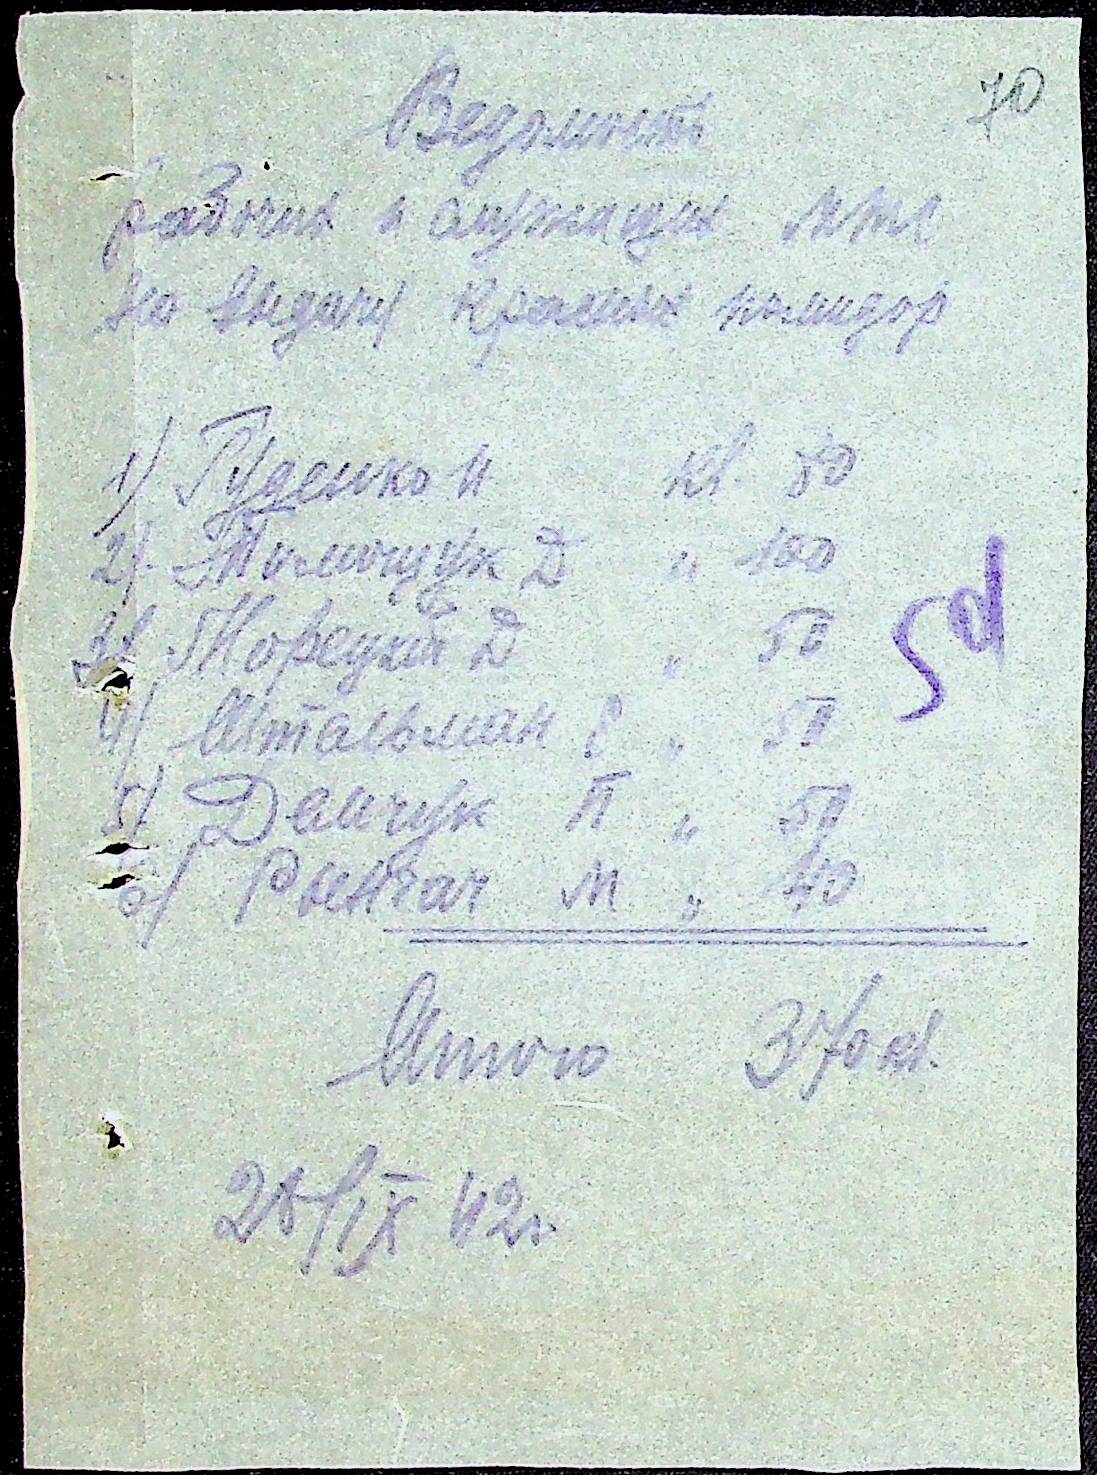 70
Ведомость
рабочих и служащих МТМ
на выдачу красных помидор
1) Руденко И кг. 80
2) Тимощук Д " 100
3) Корецкий Д " 50
4) Штальман Е " 50
5) Демчук П " 50
6) М " 40
Итого 370 кг.
28/IX 42г